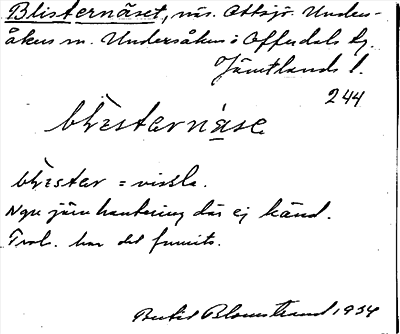 Blisternäset, näs. Ottsjö. Under-
åkers sn. Undersåkers o Offerdals tg.
Jämtlands l.
244
blìsternäse
blìster = vissla.
Ngn järnhantering där ej känd.
Trol. har det funnits.
Bertil Blomstrand 1934